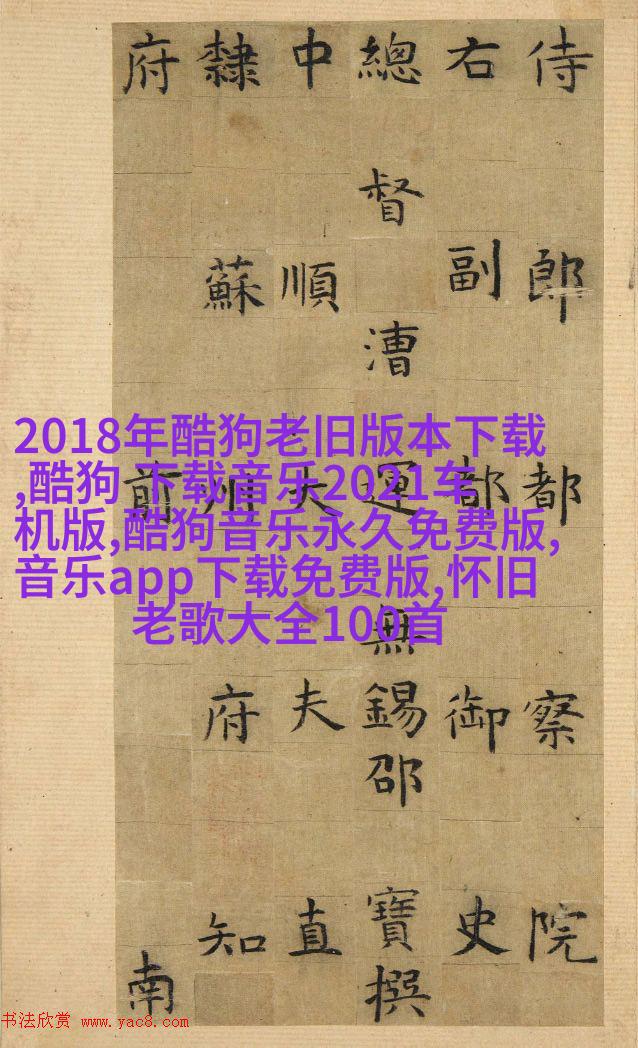 侍郎都察院
右副部御史
總督漕運無錫邵寶撰
中順大夫直
隸蘇州府知
府前南
2018年酷狗老旧版本下载
,酷狗 下载音乐2021车
机版,酷狗音乐永久免费版,
音乐app下载免费版,怀旧
老歌大全100首
书法欣赏 www.yac8.com